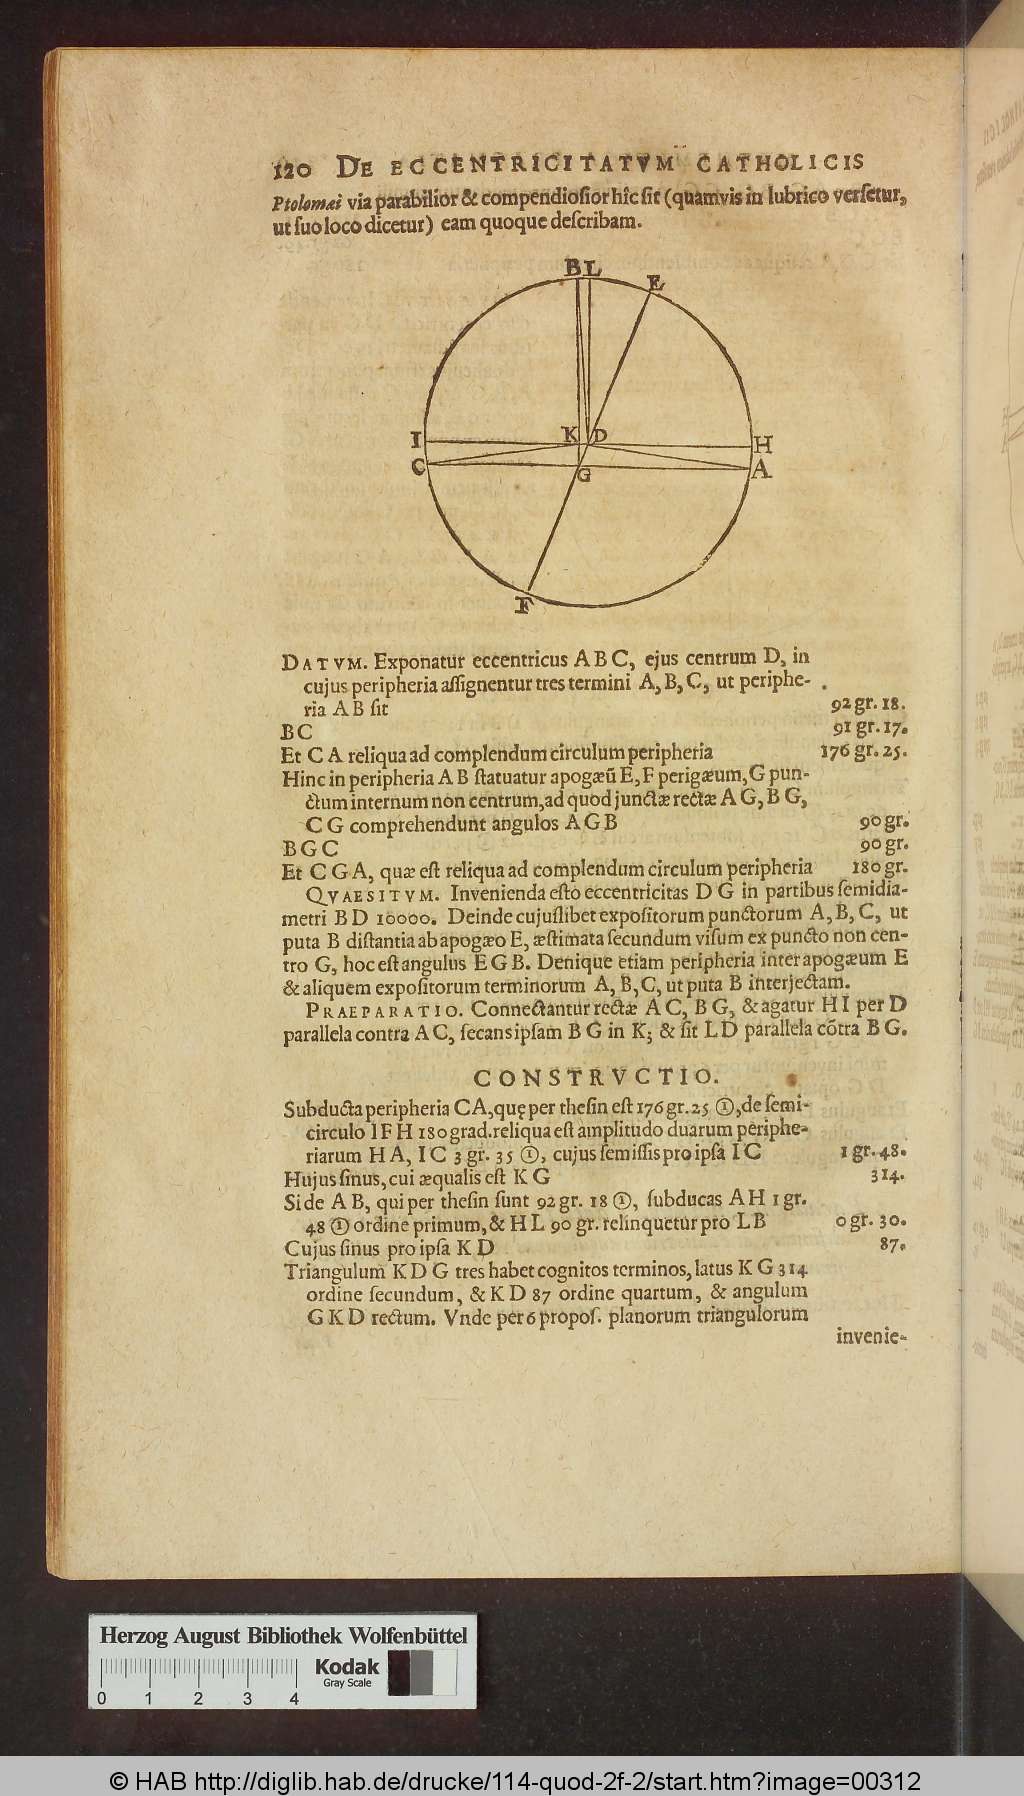 120 DE ECCENTRICITATVM CATHOLICIS
Ptolomæi via parabilior & compendiosior hîc sit (quamvis in lubrico versetur,
ut suo loco dicetur) eam quoque describam.
B L E
I K D H
C G A
F
DATVM. Exponatur eccentricus A B C, ejus centrum D, in
cujus peripheria assignentur tres termini A, B, C, ut periphe-
ria A B sit 92 gr. 18.
B C 91 gr. 17.
Et C A reliqua ad complendum circulum peripheria 176 gr. 25.
Hinc in peripheria A B statuatur apogæũ E, F perigæum, G pun-
ctum internum non centrum, ad quod junctæ rectæ A G, B G,
C G comprehendunt angulos A G B 90 gr.
B G C 90 gr.
Et C G A, quæ est reliqua ad complendum circulum peripheria 180 gr.
QVAESITVM. Invenienda esto eccentricitas D G in partibus semidia-
metri B D 10000. Deinde cujuslibet expositorum punctorum A, B, C, ut
puta B distantia ab apogæo E, æstimata secundum visum ex puncto non cen-
tro G, hoc est angulus E G B. Denique etiam peripheria inter apogæum E
& aliquem expositorum terminorum A, B, C, ut puta B interjectam.
PRAEPARATIO. Connectantur rectæ A C, B G, & agatur H I per D
parallela contra A C, secans ipsam B G in K; & sit L D parallela cõtra B G.
CONSTRVCTIO.
Subducta peripheria C A, quę per thesin est 176 gr. 25 ①, de semi-
circulo I F H 180 grad. reliqua est amplitudo duarum periphe-
riarum H A, I C 3 gr. 35 ①, cujus semissis pro ipsa I C 1 gr. 48.
Hujus sinus, cui æqualis est K G 314.
Si de A B, qui per thesin sunt 92 gr. 18 ①, subducas A H 1 gr.
48 ① ordine primum, & H L 90 gr. relinquetur pro L B 0 gr. 30.
Cujus sinus pro ipsa K D 87.
Triangulum K D G tres habet cognitos terminos, latus K G 314
ordine secundum, & K D 87 ordine quartum, & angulum
G K D rectum. Vnde per 6 propos. planorum triangulorum
invenie-
Herzog August Bibliothek Wolfenbüttel
Kodak
Gray Scale
0 1 2 3 4
© HAB http://diglib.hab.de/drucke/114-quod-2f-2/start.htm?image=00312